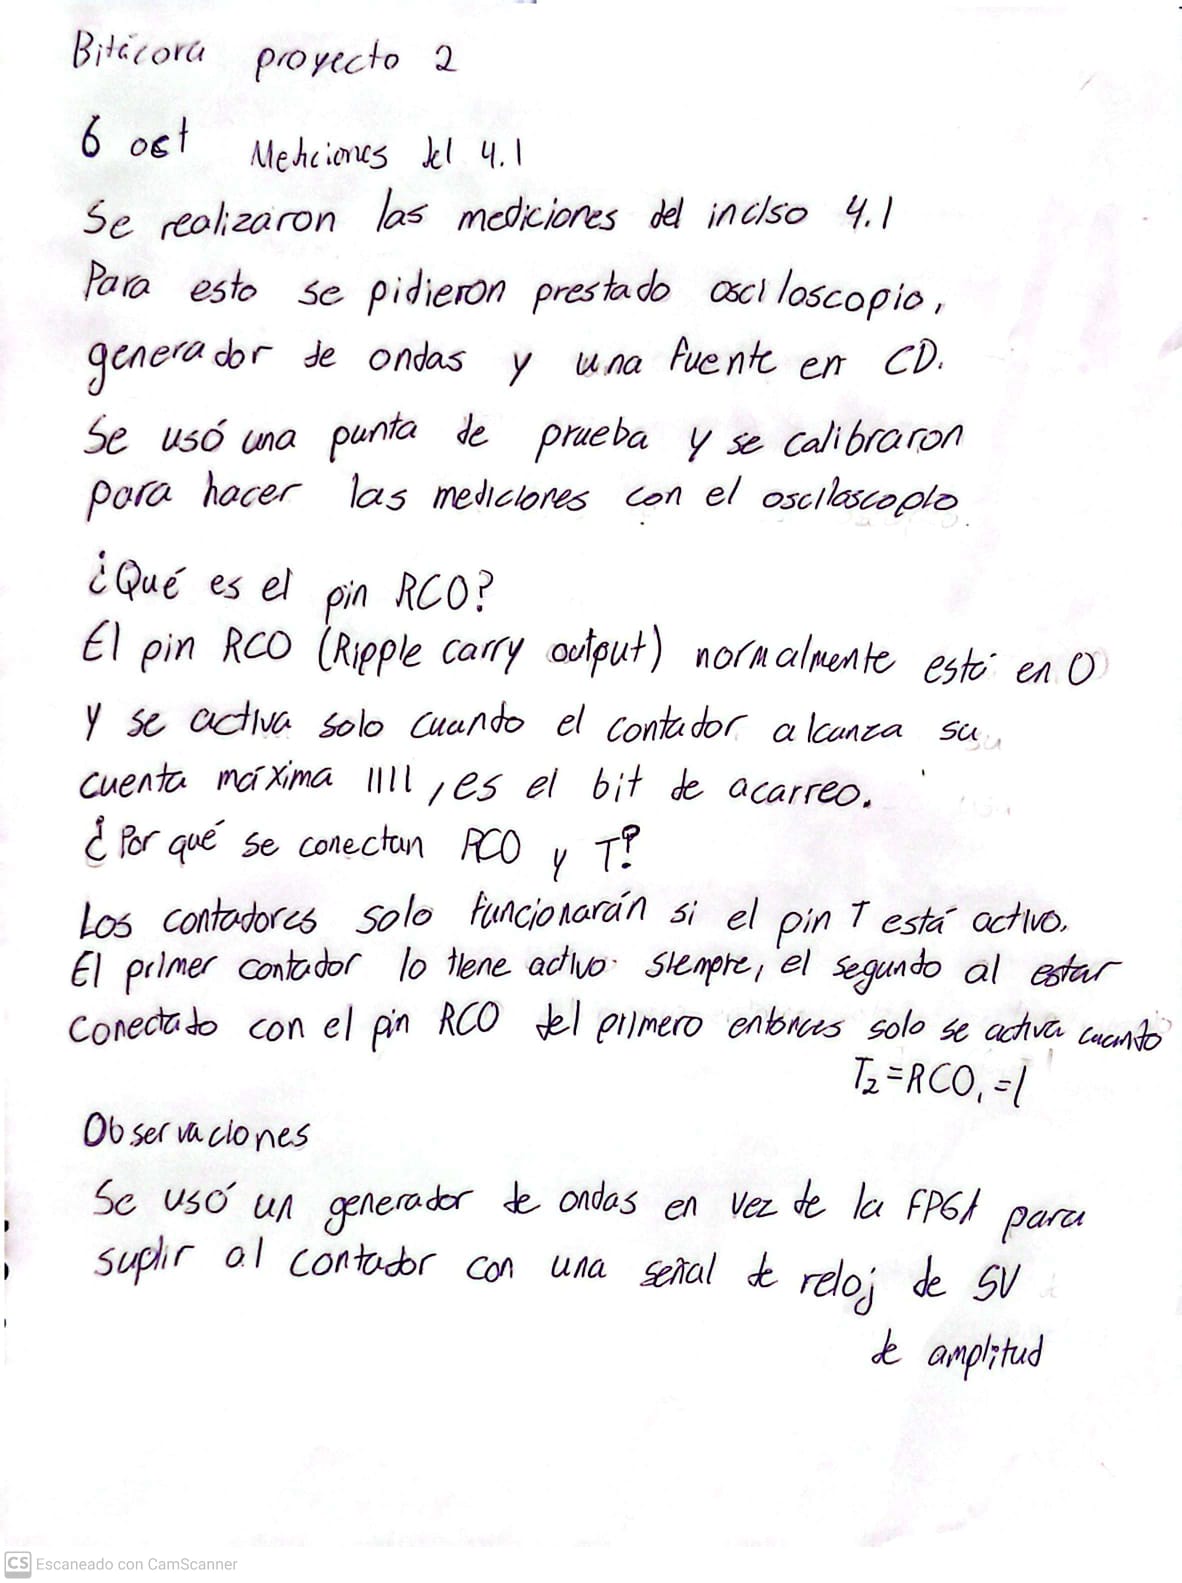 Bitácora proyecto 2
6 oct Mediciones del 4.1
Se realizaron las mediciones del inciso 4.1
Para esto se pidieron prestado osciloscopio,
generador de ondas y una fuente en CD.
Se usó una punta de prueba y se calibraron
para hacer las mediciones con el osciloscopio.
¿Qué es el pin RCO?
El pin RCO (Ripple carry output) normalmente está en 0
y se activa solo cuando el contador alcanza su
cuenta máxima 1111, es el bit de acarreo.
¿Por qué se conectan RCO y T?
Los contadores solo funcionarán si el pin T está activo.
El primer contador lo tiene activo siempre, el segundo al estar
conectado con el pin RCO del primero entonces solo se activa cuando
T₂=RCO₁=1
Observaciones
Se usó un generador de ondas en vez de la FPGA para
suplir al contador con una señal de reloj de 5V
de amplitud
CS Escaneado con CamScanner